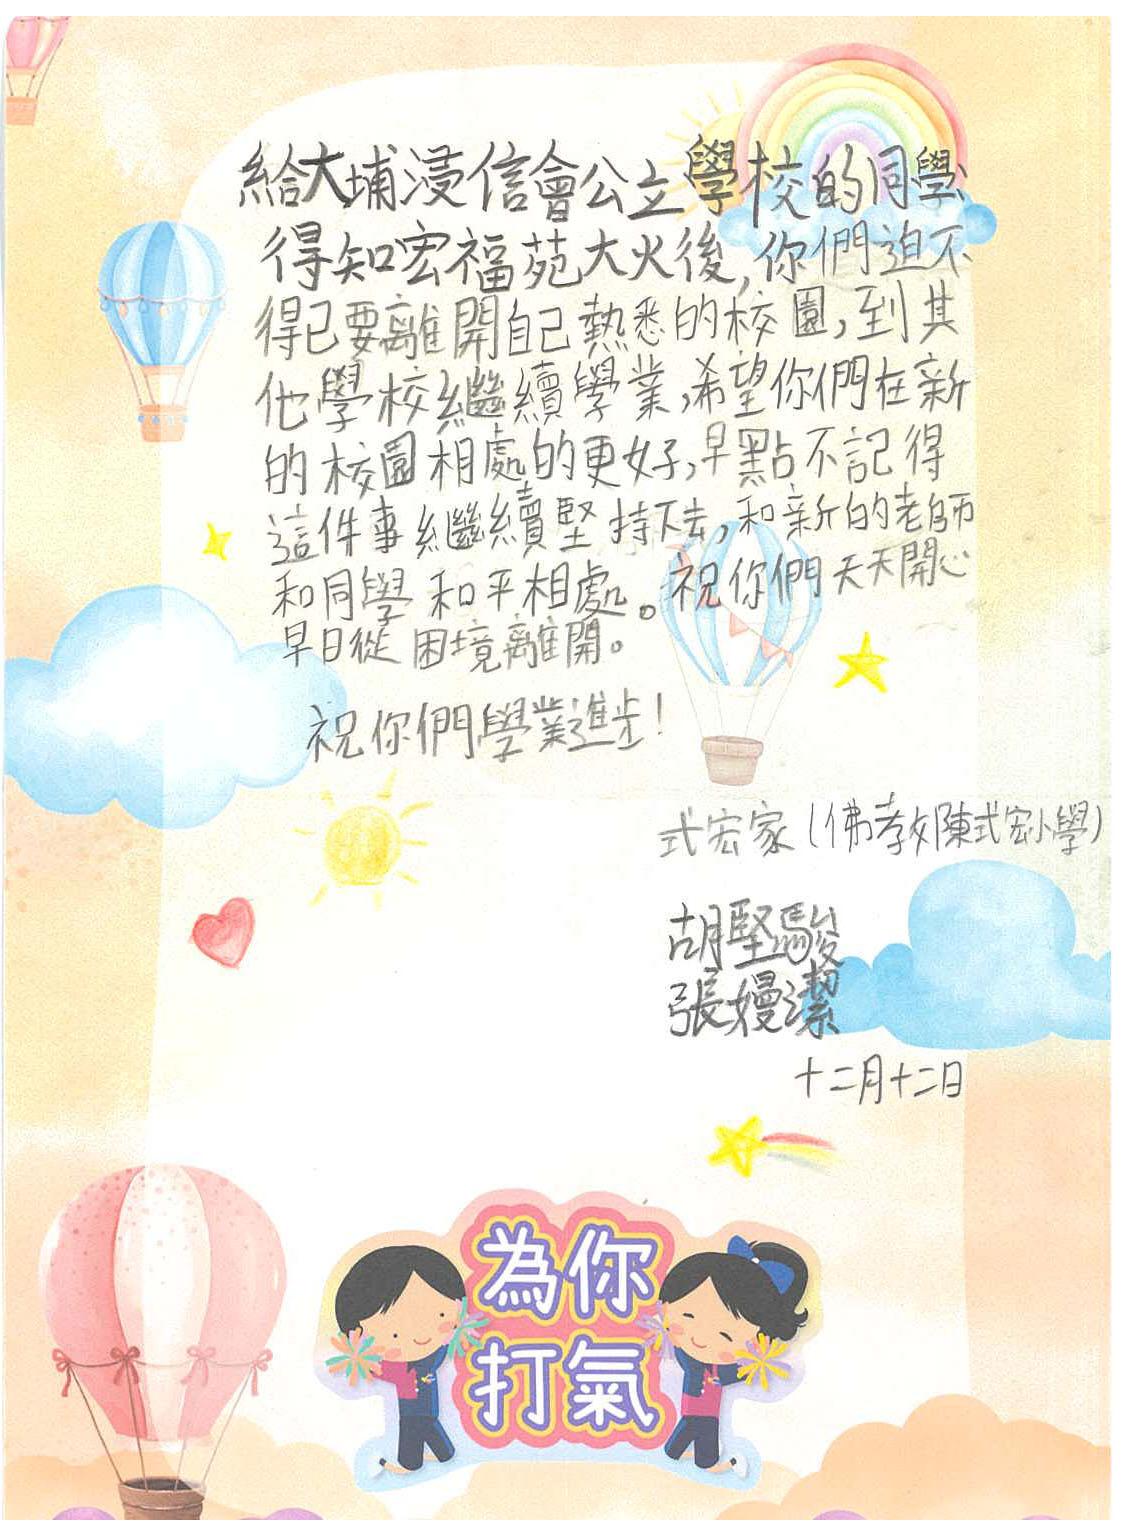 給大埔浸信會公立學校的同學
得知宏福苑大火後,你們迫不
得已要離開自己熱悉的校園,到其
他學校繼續學業,希望你們在新
的校園相處的更好,早點不記得
這件事繼續堅持下去,和新的老師
和同學和平相處。祝你們天天開心
早日從困境離開。
祝你們學業進步!
式宏家(佛教陳式宏小學)
胡堅駿
張嫚潔
十二月十二日
為你
打氣